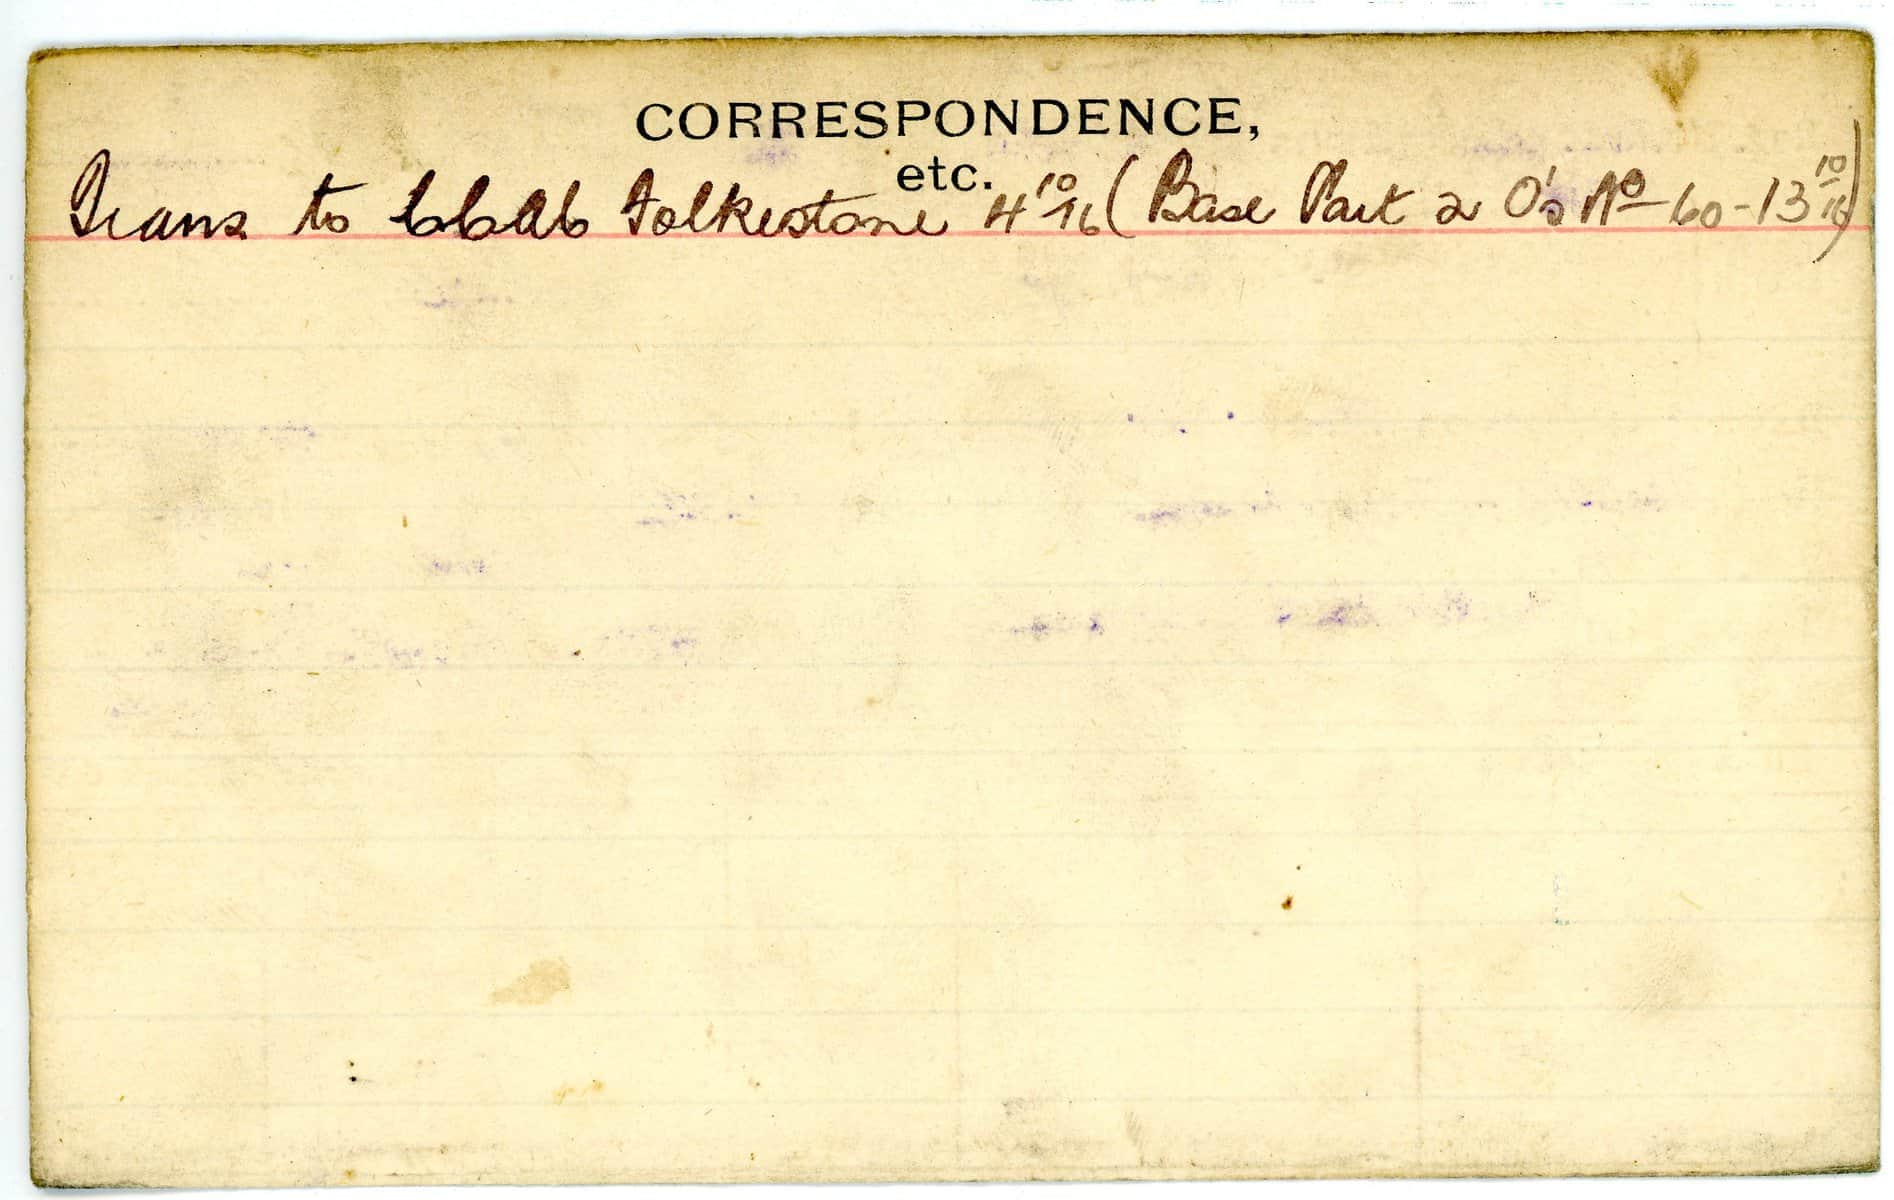 CORRESPONDENCE,
etc.
Trans to CCAC Folkestone 4-10-16 (Base Part 2 O's No 60-13-10-16)